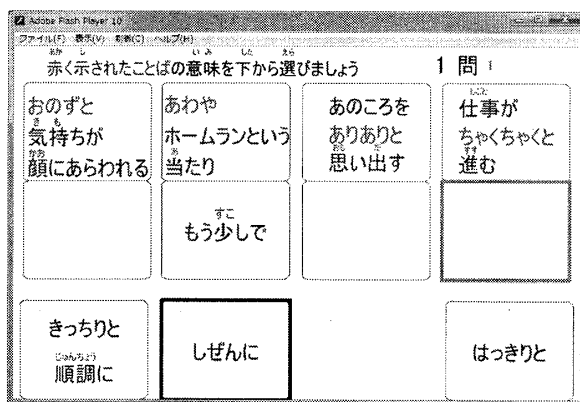 Adobe Flash Player 10
ファイル(F) 表示(V) 制御(C) ヘルプ(H)
赤く示されたことばの意味を下から選びましょう
1 問
おのずと
気持ちが
顔にあらわれる
あわや
ホームランという
当たり
あのころを
ありありと
思い出す
仕事が
ちゃくちゃくと
進む
もう少しで
きっちりと
順調に
しぜんに
はっきりと